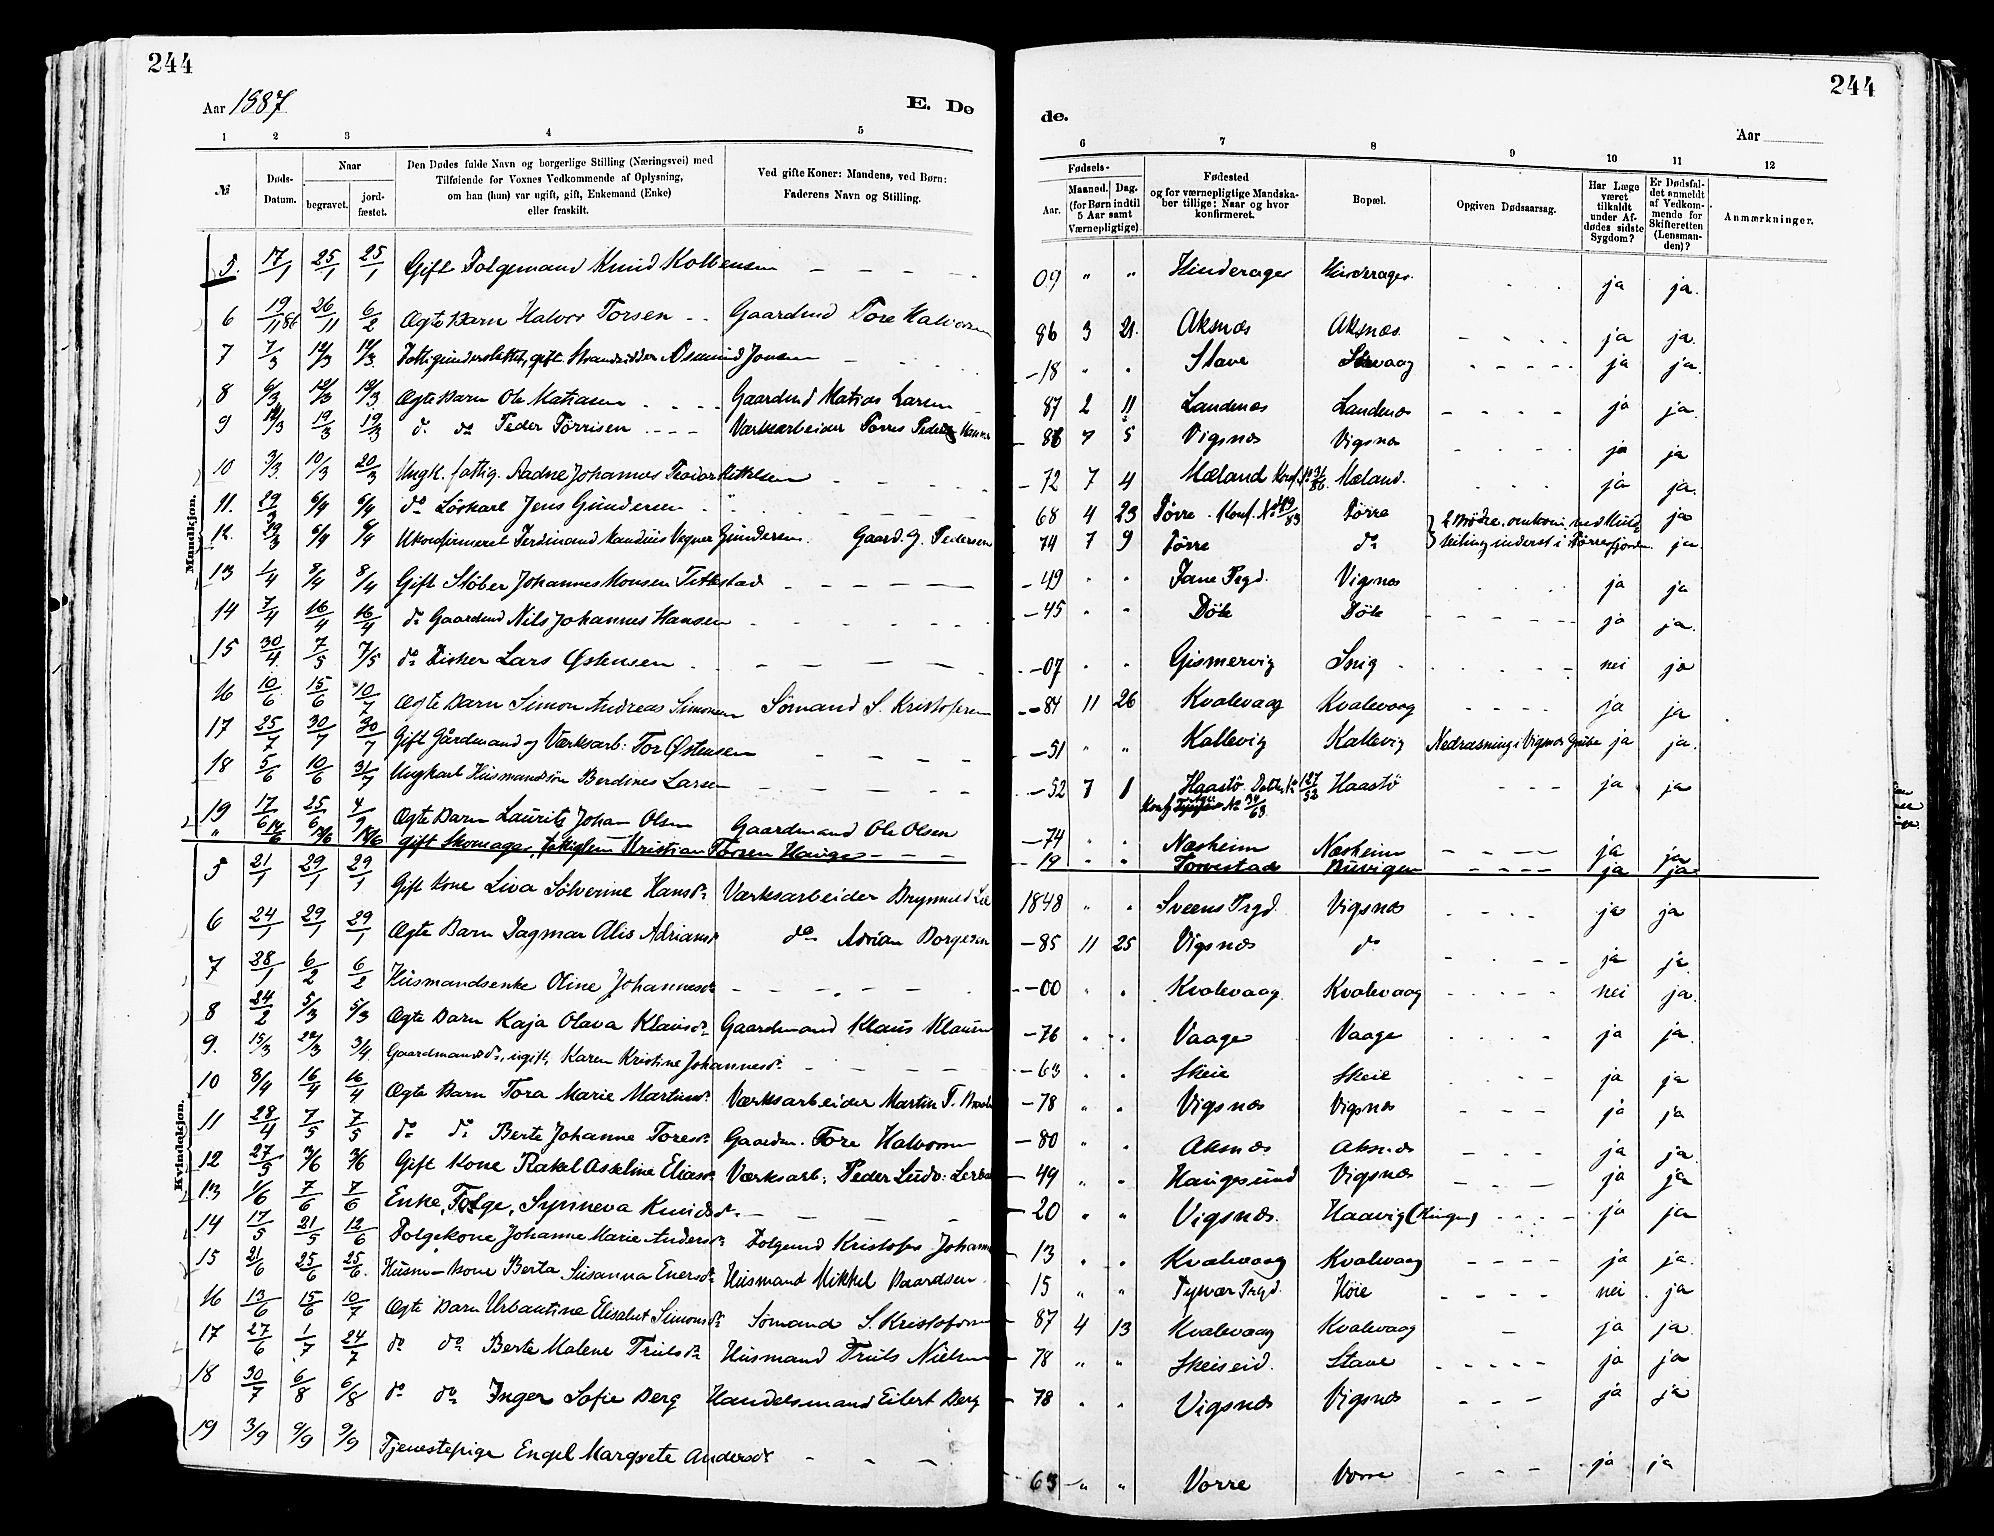 244
244
Aar 1887
E. Dø
de.
Aar
1 2 3 4 5
6 7 8 9 10 11 12
№
Døds-Datum.
Naar
begravet.
jord-fæstet.
Den Dødes fulde Navn og borgerlige Stilling (Næringsvei) med
Tilføiende for Voxnes Vedkommende af Oplysning,
om han (hun) var ugift, gift, Enkemand (Enke)
eller fraskilt.
Ved gifte Koner: Mandens, ved Børn:
Faderens Navn og Stilling.
Fødsels-
Aar.
Maaned.
Dag.
(for Børn indtil
5 Aar samt
Værnepligtige)
Fødested
og for værnepligtige Mandska-
ber tillige: Naar og hvor
konfirmeret.
Bopæl.
Opgiven Dødsaarsag.
Har Læge
været
tilkaldt
under Af-
dødes sidste
Sygdom?
Er Dødsfal-
det anmeldt
af Vedkom-
mende for
Skifteretten
(Lensman-
den)?
Anmærkninger.
Mandkjøn.
5. 17/1 25/1 25/1 Gift Folgemand Knud Kolbensen 09 " " Hinderager Hinderager ja ja.
6 19/11 86 26/11 6/2 Ægte Barn Halvor Torsen Gaardmd Tore Halvorsen 86 3 21. Aksnæs Aksnæs ja ja.
7 7/3 12/3 12/3 gift Strandsidder Asmund Jonsen 18 " " Stave ja ja.
8 6/3 12/3 12/3 Ægte Barn Ole Matiasen Gaardmd Matias Larsen 87 2 11 Landenæs Landenæs ja ja.
9 19/3 19/3 d. do Peder Tørrisen Værksarbeider Tørres 86 7 5 Vigsnæs Vigsnæs ja ja
10 3/3 10/3 20/3 Ungk. fattig. Aadne Johannes 72 7 4 Mæland Konf. Mæland. ja ja.
11. 29/3 6/4 6/4 do Løskarl Jens Gundersen 68 4 23 Førre. Konf. Førre ja
12. 29/3 6/4 6/4 Ukonfirmeret Ferdinand Gundersen. Gaard. G. Pedersen 74 7 9 Førre do 2 Brødre, omkom. ved inderst i Førrefjorden ja.
13 1/4 8/4 8/4 Gift Støber Johannes Monsen 49 " " Vigsnæs ja ja
14 7/4 16/4 16/4 do Gaardmd Nils Johannes Hansen 45 " " Døle Døle ja ja.
15 30/4 7/5 7/5 do Fisker Lars Østensen 07 " " Gismervig Snig nei ja
16 10/6 15/6 10/7 Ægte Barn Simon Andreas Simonsen Sømand S. Kristofersen 84 11 26 Kvalevaag Kvalevaag ja ja
17 25/7 30/7 30/7 Gift Gårdmand og Værksarb: Tor Østensen 51 " " Kallevig Kallevig Nedrasning i Vigsnæs Grube ja ja.
18 5/6 10/6 31/7 Ungkarl Husmandssøn Berdines Larsen 52 7 1 Haastø 127/52 Haastø ja ja
Konf. 63
19 17/6 25/6 4/9 Ægte Barn Laurits Johan Olsen Gaardmand Ole Olsen 74 " " Næsheim Næsheim ja ja
" gift Skomager Kristian Torsen Hauge 19 " " ja ja
Kvindekjøn.
5 21/1 29/1 29/1 Gift Kone Liva Sølverine Hansdr Værksarbeider 1848 " " Sveens Prgd. Vigsnæs ja ja
6 24/1 29/1 29/1 Ægte Barn Dagmar Alis Adriansdr do Adrian Borgesen 85 11 25 Vigsnæs do ja ja.
7 28/1 6/2 6/2 Husmandsenke Oline Johannesdr 00 " " Kvalevaag Kvalevaag nei ja.
8 24/2 5/3 5/3 Ægte Barn Kaja Olava Klausdr Gaardmand Klaus Klausen 76 " " Vaage Vaage ja ja.
9. 15/3 3/4 Gaardmandsdr, ugift, Karen Kristine Johannesdr. 63 " " Skeie Skeie ja ja
10 8/4 16/4 16/4 Ægte Barn Tora Marie Martinsdr Værksarbeider Martin T. 78 " " Vigsnæs Vigsnæs ja ja
11 28/4 7/5 7/5 do do Berte Johanne Toresdr Gaardm. Tore Halvorsen 80 " " Aksnæs Aksnæs ja ja.
12 27/5 3/6 3/6 Gift Kone Rakel Asseline Eliasdr Værksarb: Peder Ludv: 49 " " Haugesund Vigsnæs ja ja
13 1/6 7/6 7/6 Enke, Folge, Synneva Knudsdr. 20 " " Vigsnæs. Haavig ja ja
14 17/5 21/5 12/6 Folgekone Johanne Marie Andersdr Folgemd Kristofer 13 " " Kvalevaag Kvalevaag ja ja.
15 21/6 25/6 25/6. Husm-kone Berta Susanna Enersdr Husmand Mikkel Baardsen 15 " " Tysvær Prgd. Høie nei ja
16 13/6 15/6 10/7 Ægte Barn Urbantine Elisabet Simonsdr Sømand S. Kristofersen 87 4 13 Kvalevaag Kvalevaag ja ja.
17 27/6 1/7 24/7 do do Berte Malene Trulsdr Husmand Truls Nielsen 78 " " Skeiseid. Stave ja ja
18 30/7 6/8 6/8 do do Inger Sofie Berg Handelsmand Eilert Berg 78 " " Vigsnæs Vigsnæs ja ja
19 3/9 9/9 9/9 Tjenestepige Engel Margrete Andersdr 63 " " Vorre Vorre ja ja